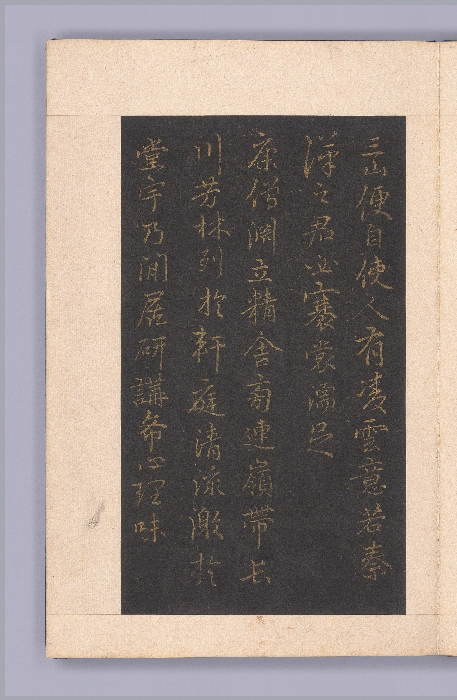 三山便自使人有凌雲意若秦
漢之君必褰裳濡足
康僧淵立精舍旁連嶺帶長
川芳林列於軒庭清流激於
堂宇乃閒居研講希心理味